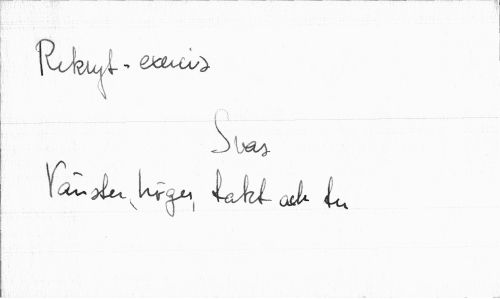 Rekryt-exercis
Svas
Vänster, höger, takt och tu